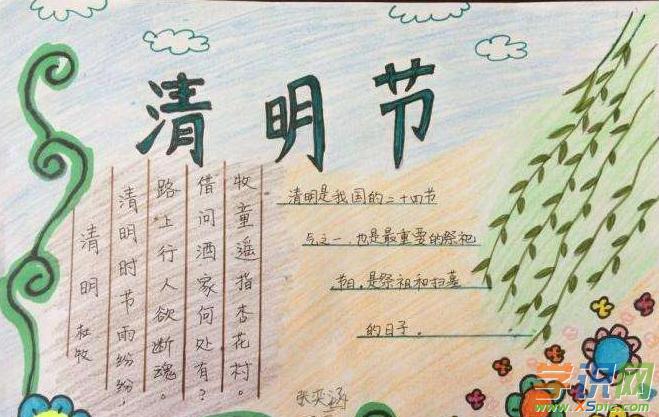 清明节
清明 杜牧
清明时节雨纷纷,
路上行人欲断魂。
借问酒家何处有?
牧童遥指杏花村。
清明是我国的二十四节
气之一,也是最重要的祭祀
节日,是祭祖和扫墓
的日子。
学识网
www.XSpic.com